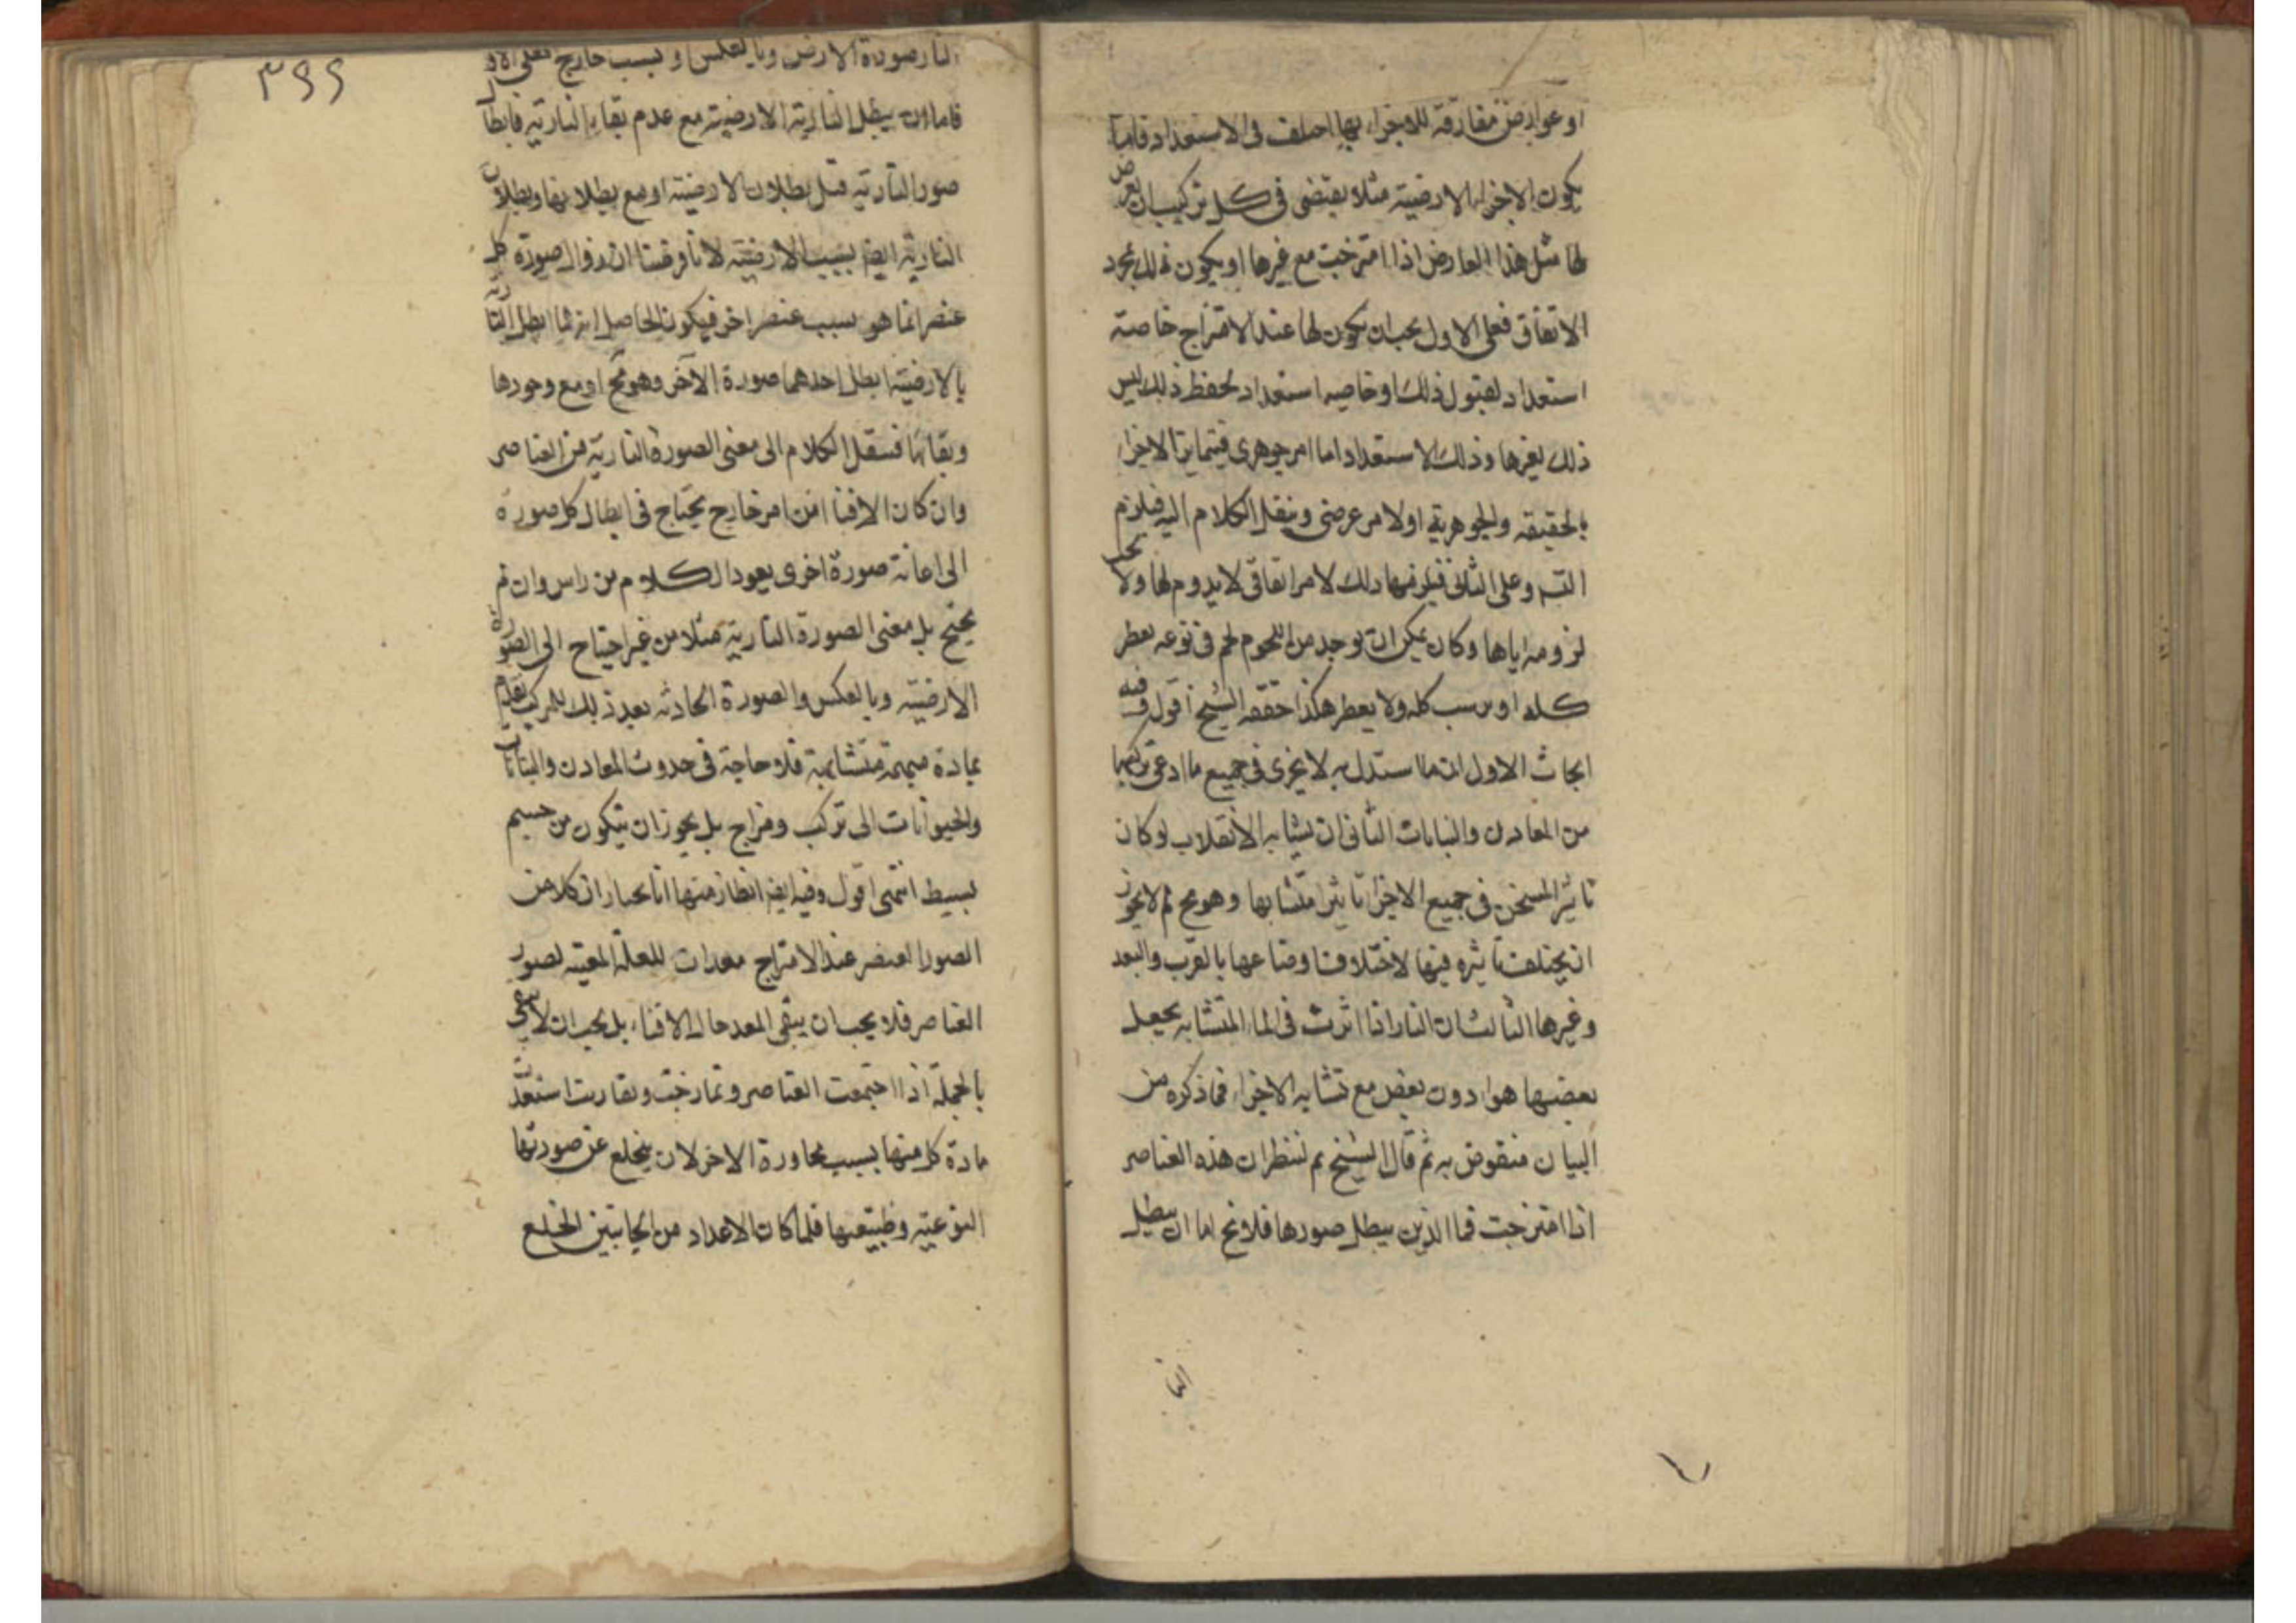 او عوارض مفارقة للاجزاء بها اختلف فى الاستعداد فاما ان
يكون الاجزاء الارضية مثلا يقتضى فى كل تركيب ان يعرض
لها مثل هذا العارض اذا امتزجت مع غيرها او يكون ذلك بمجرد
الاتفاق فعلى الاول يجب ان يكون لها عند الامتزاج خاصة
استعداد لقبول ذلك او خاصيه استعداد لحفظ ذلك ليس
ذلك لغيرها وذلك الاستعداد اما امر جوهرى فيتمايز الاجزاء
بالحقيقه والجوهرية او لامر عرضى وينقل الكلام اليه فيلزم
التسه وعلى الثانى فيلزمها ذلك لامر اتفاقى لا يدوم لها ولا يجب
لزومه اياها وكان يمكن ان يوجد من اللحوم لحم فى نوعه يقطر
كله او يرسب كله ولا يقطر هكذا حققه الشيخ اقول وفيه
ابحاث الاول ان ما استدل به لا يجرى فى جميع ما ادعى تركبها
من المعادن والنباتات الثانى ان تشابه الانقلاب لو كان
تاثير المسخن فى جميع الاجزا تاثيرا متشابها وهو مح لم لا يجوز
ان يختلف تاثيره فيها لاختلاف اوضاعها بالقرب والبعد
وغيرها الثالث ان النار اذا اثرت فى الماء المتشابه يجعل
بعضها هواء دون بعض مع تشابه الاجزاء فما ذكره من
البيان منقوض به ثم قال الشيخ ثم لننظر ان هذه العناصر
اذا امتزجت فما الذين يبطل صورها فلا يخ اما ان يبطل
النا
٣٩٩
النار صورة الارض وبالعكس او بسبب خارج فعلى الاول
فاما ان يبطل النارية الارضية مع عدم بقاء النارية فابطال
صور النارية قبل بطلان الارضية او مع بطلانها وبطلان
النارية ايضا بسبب الارضية لانا فرضنا ان زوال صورة كل
عنصر انما هو بسبب عنصر اخر فيكون الحاصل انه لما ابطل النارية
بالارضية ابطل احدهما صورة الآخر وهو مح او مع وجودها
وبقائها فننقل الكلام الى مفنى الصورة النارية من العناصر
وان كان الافنا من امر خارج يحتاج فى ابطال كل صورة
الى اعانة صورة اخرى يعود الكلام من راس وان لم
يحتج بل مفنى الصورة النارية مثلا من غير احتياج الى الصورة
الارضية وبالعكس والصورة الحادثه بعد ذلك للمركب تقدم
بمادة مبهمة متشابهة فلا حاجة فى حدوث المعادن والنباتات
والحيوانات الى تركيب ومزاج بل يجوز ان يتكون من جسم
بسيط انتهى اقول وفيه ايضا انظار منها انا نختار ان كلا من
الصور العنصر عند الامتزاج معدات للعلة المفنيه لصور
العناصر فلا يجب ان يبقى المعد حال الافناء بل يجب ان لا يبقى
بالجملة اذا اجتمعت العناصر وتمازجت وتقاربت استعدت
مادة كل منها بسبب مجاورة الاخر لان ينخلع عن صورتها
النوعية وطبيعتها فلما كان الاعداد من الجانبين انخلع